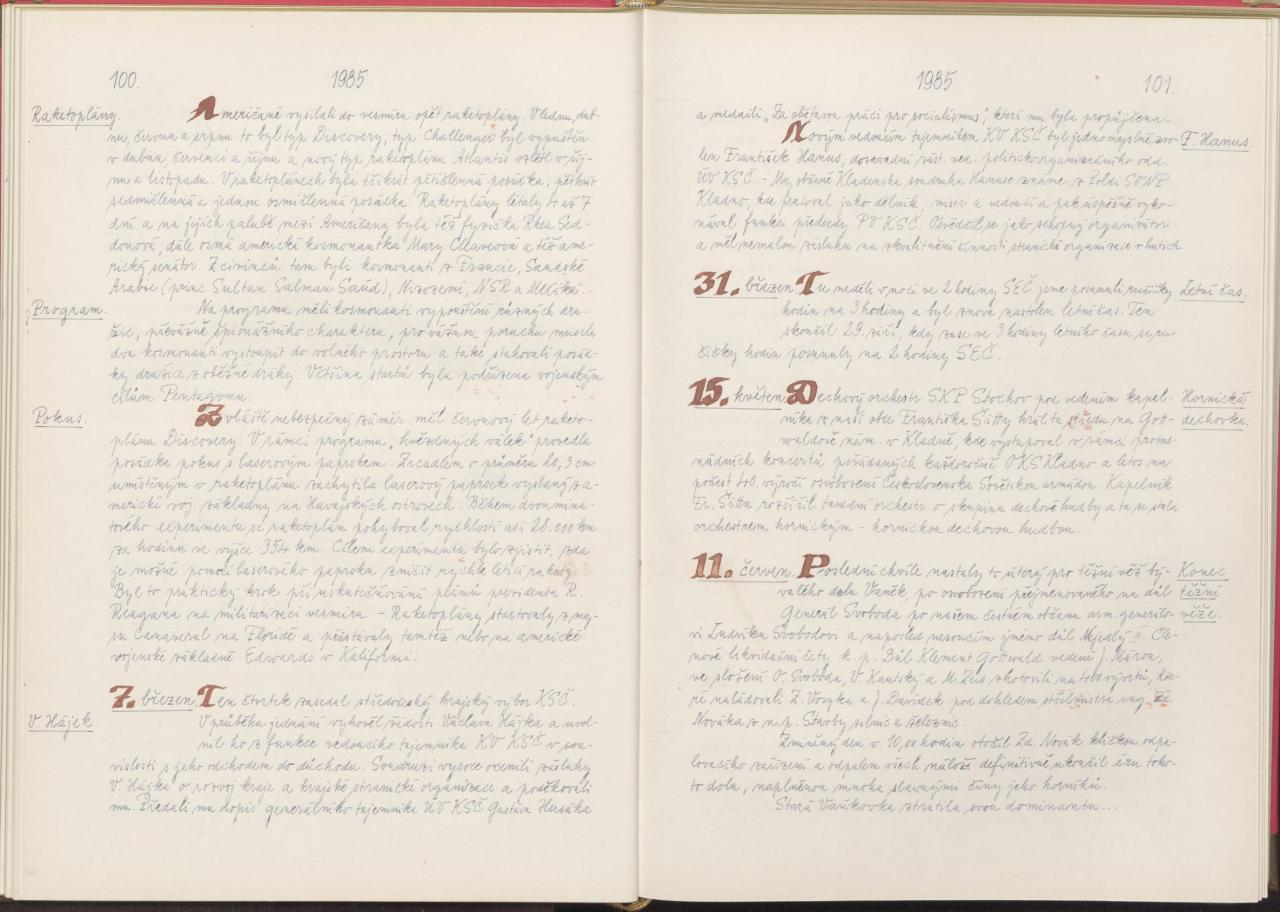 100.
1985
Raketoplány.
Američané vysílali do vesmíru opět raketoplány. V lednu, dub-
nu, červnu a srpnu to byl typ Discovery, typ Challenger byl vypuštěn
v dubnu, červenci a říjnu a nový typ raketoplánu Atlantis vzlétl v říj-
nu a listopadu. V raketoplánech byla třikrát pětičlenná posádka, pětkrát
sedmičlenná a jednou osmičlenná posádka. Raketoplány létaly 4 až 7
dní a na jejich palubě mezi Američany byla též fyzička Rhea Sed-
donová, dále osmá americká kosmonautka Mary Cleaveová a též ame-
rický senátor. Z cizinců tam byli kosmonauti z Francie, Saudské
Arabie (princ Sultan Salman Saúd), Nizozemí, NSR a Mexika.-
Program.
Na programu měli kosmonauti vypouštění různých dru-
žic, převážně špionážního charakteru, pro vážnou poruchu museli
dva kosmonauti vystoupit do volného prostoru a také stahovali posád-
ky družice z oběžné dráhy. Většina startů byla podřízena vojenským
cílům Pentagonu.
Pokus.
Zvláště nebezpečný záměr měl červnový let raketo-
plánu Discovery. V rámci programu „hvězdných válek" provedla
posádka pokus s laserovým paprskem. Zrcadlem o průměru 20,3 cm
umístěným v raketoplánu zachytila laserový paprsek vyslaný z a-
merické voj. základny na Havajských ostrovech. Během dvouminu-
tového experimentu se raketoplán pohyboval rychlostí asi 28.000 km
za hodinu ve výšce 354 km. Cílem experimentu bylo zjistit, zda
je možné pomocí laserového paprsku zničit rychle letící rakety.
Byl to praktický krok při uskutečňování plánů prezidenta R.
Reagana na militarizaci vesmíru. - Raketoplány startovaly z my-
su Canaveral na Floridě a přistávaly tamtéž nebo na americké
vojenské základně Edwards v Kalifornii.
7. březen. Ten čtvrtek zasedal středočeský krajský výbor KSČ.
V. Hájek.
V průběhu jednání vyhověl žádosti Václava Hájka a uvol-
nil ho z funkce vedoucího tajemníka KV KSČ v sou-
vislosti s jeho odchodem do důchodu. Soudruzi vysoce ocenili zásluhy
V. Hájka o rozvoj kraje a krajské stranické organizace a poděkovali
mu. Předali mu dopis generálního tajemníka ÚV KSČ Gustáva Husáka
1985
101.
a medaili „Za obětavou práci pro socialismus", která mu byla propůjčena.
Novým vedoucím tajemníkem KV KSČ byl jednomyslně zvo-
F. Hanus.
len František Hanus, dosavadní zást. ved. politickoorganizačního odd.
ÚV KSČ. - My občané Kladenska soudruha Hanuse známe z Poldi SONP
Kladno, kde pracoval jako dělník, mistr a vedoucí a pak úspěšně vyko-
nával funkci předsedy PV KSČ. Osvědčil se jako schopný organizátor
a měl nemalou zásluhu na zkvalitnění činnosti stranické organizace v hutích.
31. březen. Tu neděli v noci ve 2 hodiny SEČ jsme posunuli ručičky
Letní čas.
hodin na 3 hodiny a byl znovu nastolen letní čas. Ten
skončil 29. září, kdy zase ve 3 hodiny letního času se ru-
čičky hodin posunuly na 2 hodiny SEČ.
15. květen. Dechový orchestr SKP Stochov pod vedením kapel-
Hornická
dechovka.
níka z naší obce Františka Šitty hrál tu středu na Gott-
waldově nám. v Kladně, kde vystupoval v rámci prome-
nádních koncertů pořádaných každoročně OKS Kladno a letos na
počest 40. výročí osvobození Československa Sovětskou armádou. Kapelník
Fr. Šitta rozšířil taneční orchestr o skupinu dechové hudby a ta se stala
orchestrem hornickým - hornickou dechovou hudbou.
11. červen. Poslední chvíle nastaly to úterý pro těžní věž bý-
Konec
těžní
věže.
valého dolu Vaněk, po osvobození přejmenovaného na důl
Generál Svoboda po našem čestném občanu arm. generálo-
vi Ludvíku Svobodovi a naposled nesoucím jméno důl Nejedlý II. Čle-
nové likvidační čety k. p. Důl Klement Gottwald vedené J. Márou,
ve složení O. Svoboda, V. Kautský a M. Zeus zhotovili na 400 vývrtů, kte-
ré naládovali Z. Vosyka a J. Davídek pod dohledem střelmistra ing.
Nováka z n. p. Stavby silnic a železnic.
Zmíněný den v 10,00 hodin otočil Zd. Novák kličkou odpa-
lovacího zařízení a odpalem všech náloží definitivně ukončil éru toho-
to dolu, naplněnou mnoha slavnými činy jeho horníků.
Stará Vaňkovka ztratila svou dominantu...